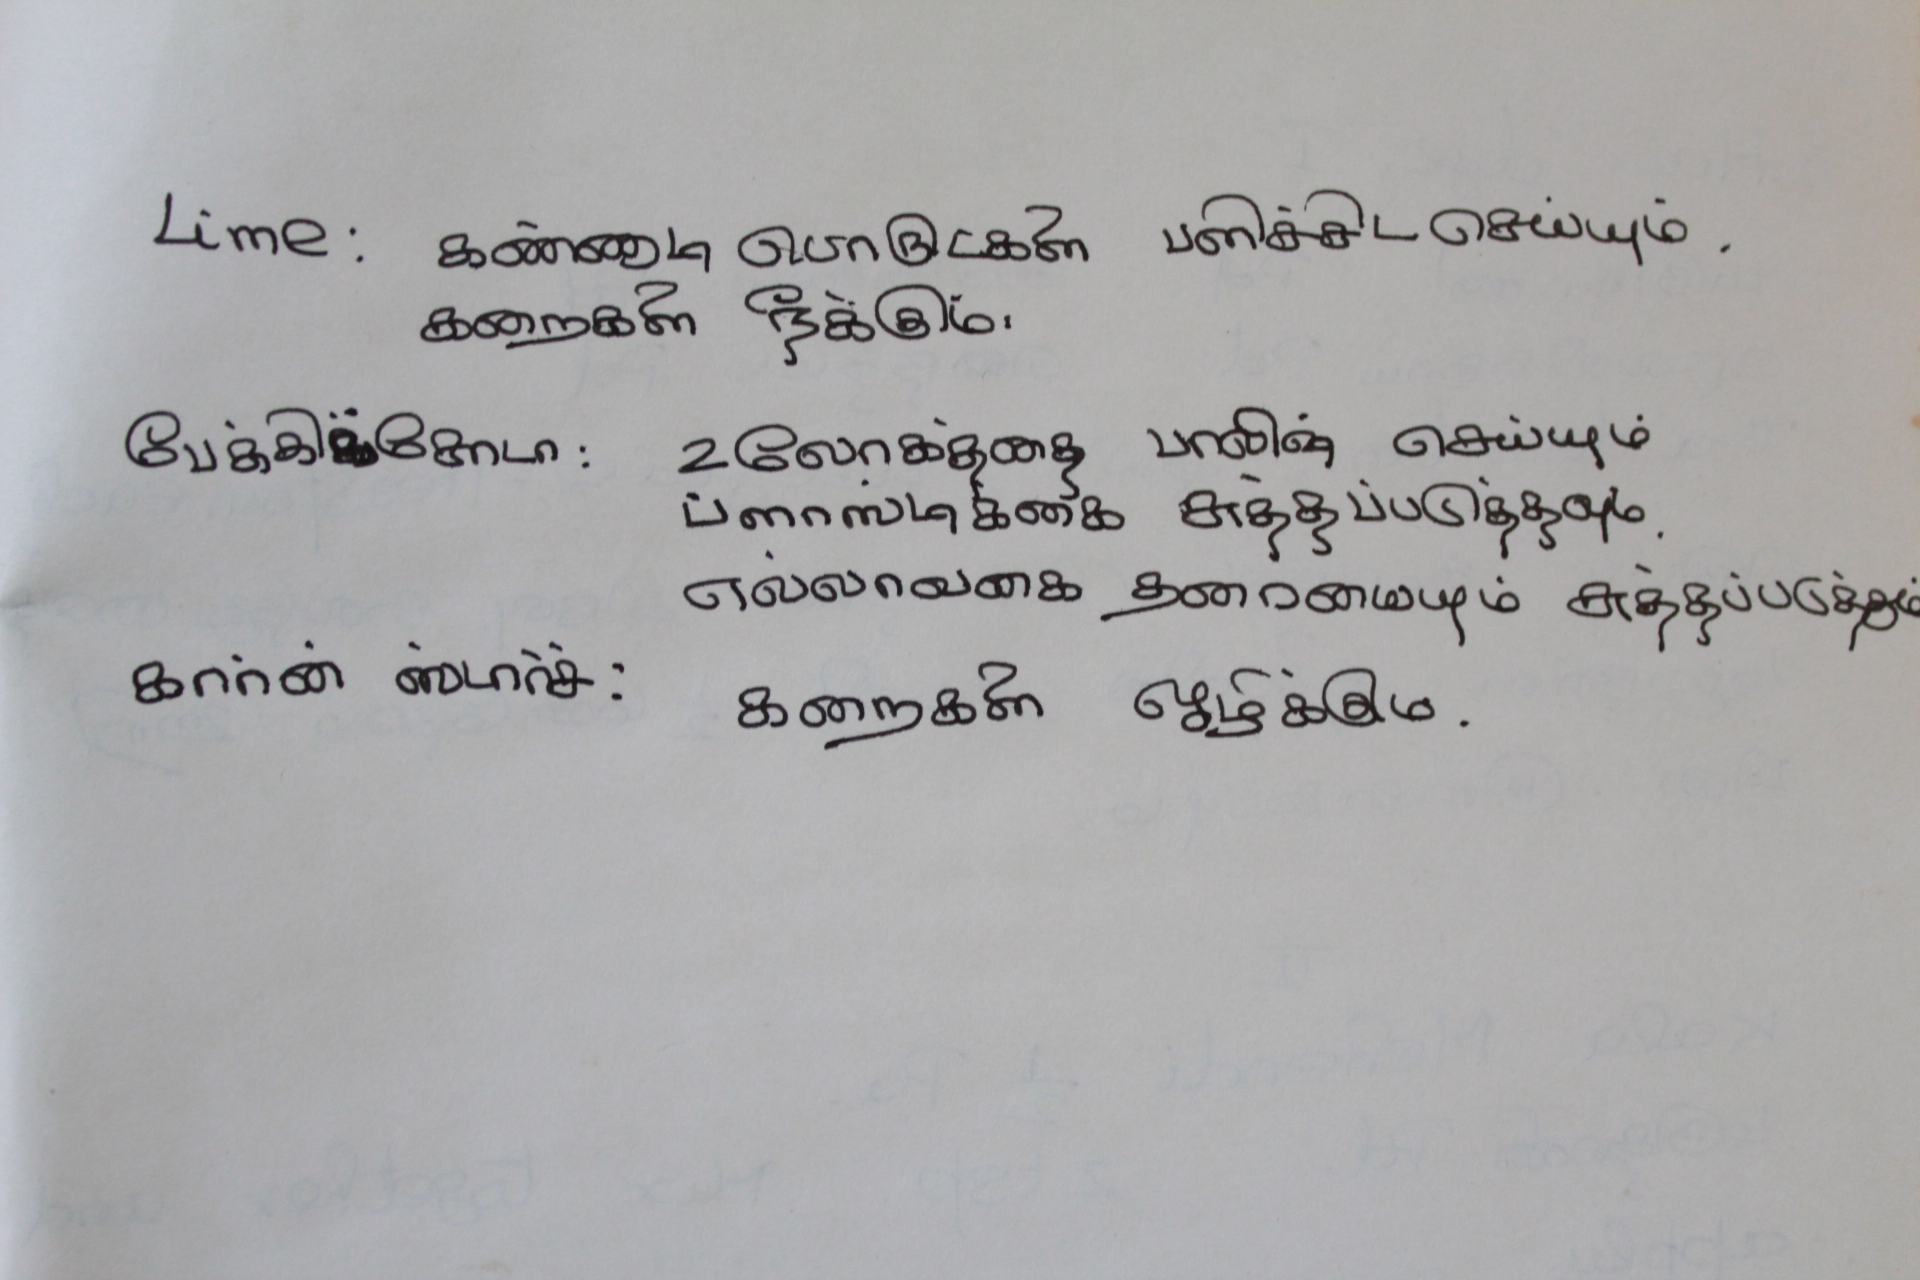 Lime: கண்ணாடி பொருட்களை பளிச்சிட செய்யும்.
கறைகளை நீக்கும்.
பேக்கிங்சோடா: உலோகத்தை பாலிஷ் செய்யும்
ப்ளாஸ்டிக்கை சுத்தப்படுத்தவும்.
எல்லாவகை தரையையும் சுத்தப்படுத்தும்
கார்ன் ஸ்டார்ச்: கறைகளை ஒழிக்கும்.